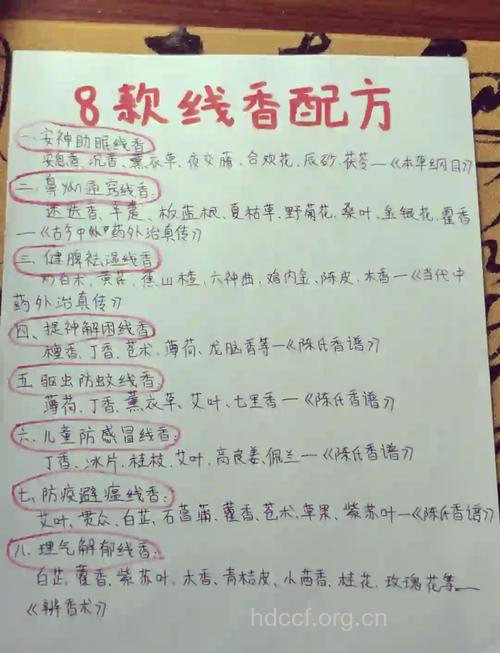 8款线香配方
一.安神助眠线香
安息香、沉香、薰衣草、夜交藤、合欢花、辰砂、茯苓—《本草纲目》
二、鼻炎通窍线香:
迷迭香、辛夷、板蓝根、夏枯草、野菊花、桑叶、金银花、藿香
—《古今中外药外治真传》
三、健脾祛湿线香
炒白术、黄芪、焦山楂、六神曲、鸡内金、陈皮、木香—《当代中
药外治真传》
四、提神解困线香
檀香、丁香、苍术、薄荷、龙脑香等—《陈氏香谱》
五.驱虫防蚊线香:
薄荷、丁香、薰衣草、艾叶、七里香—《陈氏香谱》
六.儿童防感冒线香:
丁香、冰片、桂枝、艾叶、高良姜、佩兰—《陈氏香谱》
七、防疫避瘟线香:
艾叶、贯众、白芷、石菖蒲、藿香、苍术、草果、紫苏叶—《陈氏香谱》
八.理气解郁线香:
白芷、藿香、紫苏叶、木香、青桔皮、小茴香、桂花、玫瑰花等—
《辨香术》
hdccf.org.cn